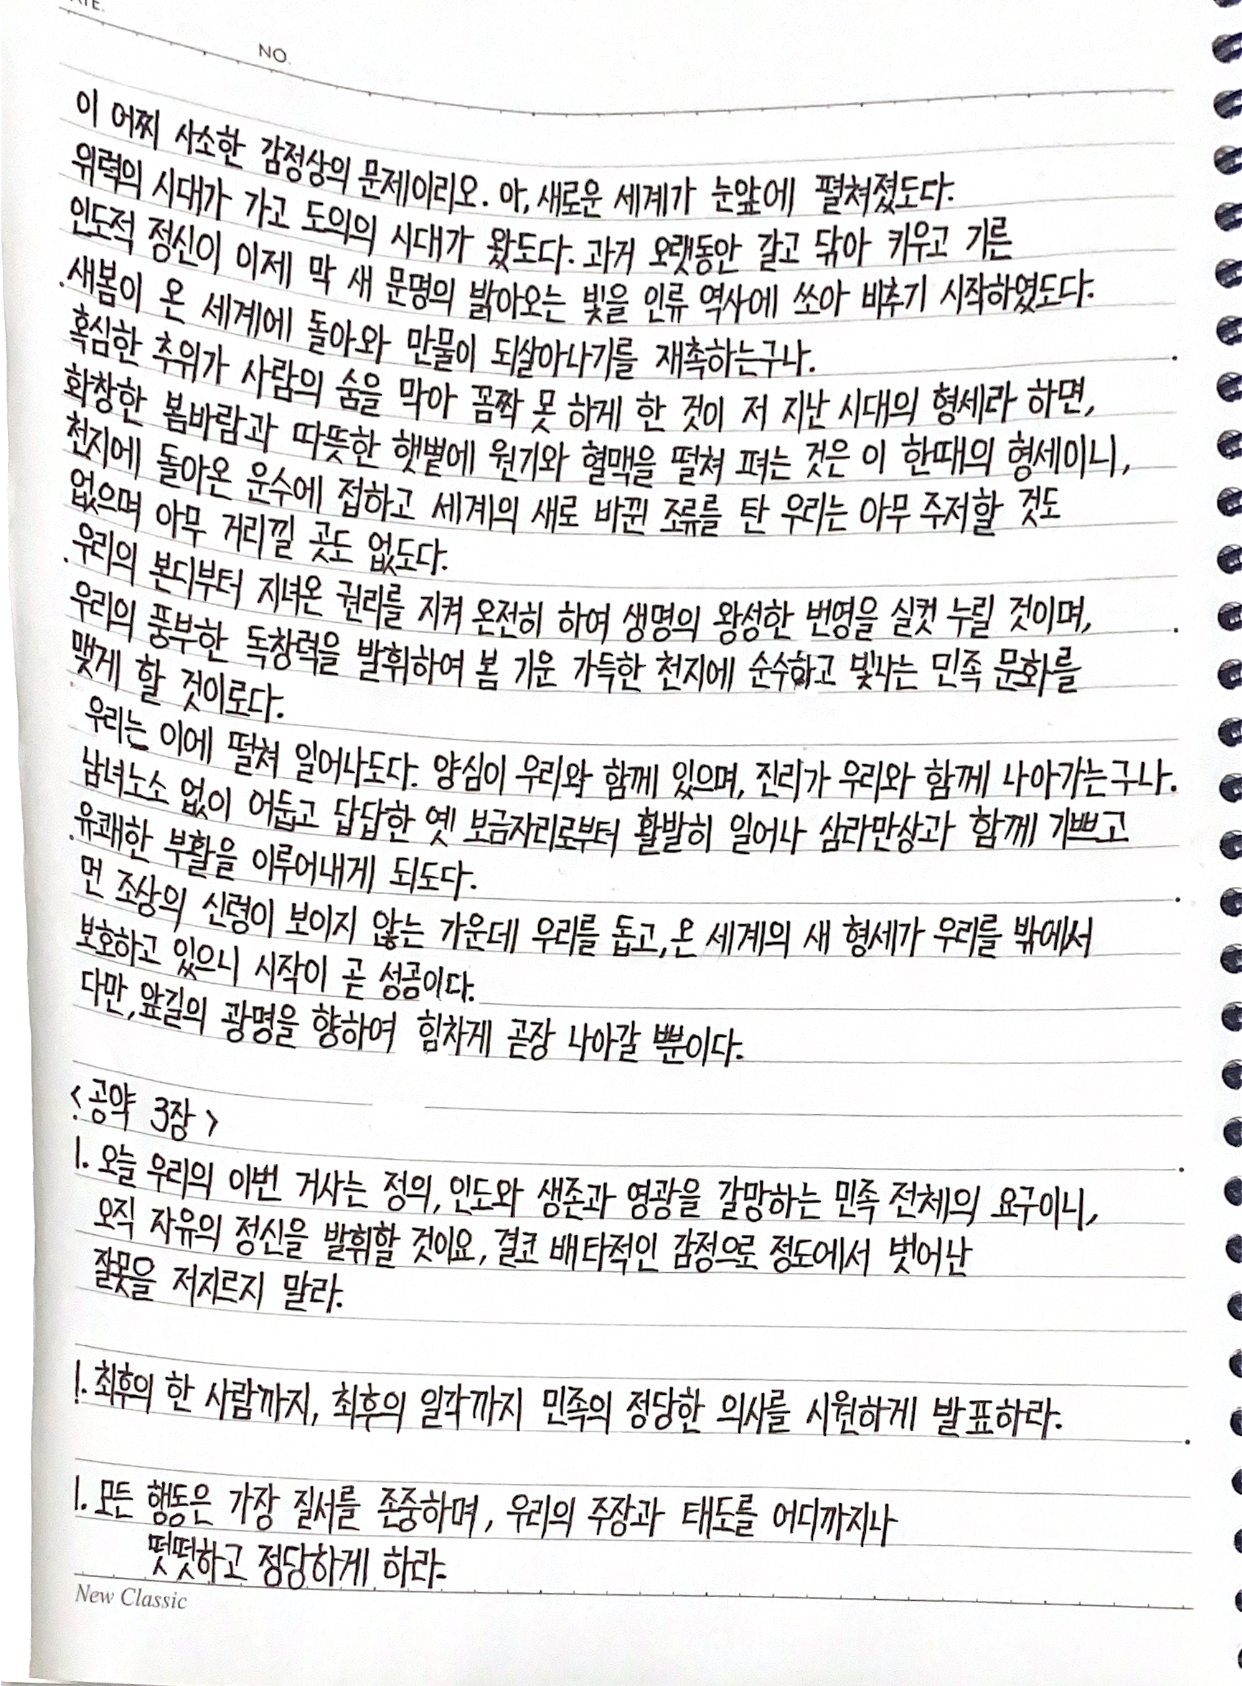 NO.
이 어찌 사소한 감정상의 문제이리오. 아, 새로운 세계가 눈앞에 펼쳐졌도다.
위력의 시대가 가고 도의의 시대가 왔도다. 과거 오랫동안 갈고 닦아 키우고 기른
인도적 정신이 이제 막 새 문명의 밝아오는 빛을 인류 역사에 쏘아 비추기 시작하였도다.
새봄이 온 세계에 돌아와 만물이 되살아나기를 재촉하는구나.
혹심한 추위가 사람의 숨을 막아 꼼짝 못 하게 한 것이 저 지난 시대의 형세라 하면,
화창한 봄바람과 따뜻한 햇볕에 원기와 혈맥을 떨쳐 펴는 것은 이 한때의 형세이니,
천지에 돌아온 운수에 접하고 세계의 새로 바뀐 조류를 탄 우리는 아무 주저할 것도
없으며 아무 거리낄 곳도 없도다.
우리의 본디부터 지녀온 권리를 지켜 온전히 하여 생명의 왕성한 번영을 실컷 누릴 것이며,
우리의 풍부한 독창력을 발휘하여 봄 기운 가득한 천지에 순수하고 빛나는 민족 문화를
맺게 할 것이로다.
우리는 이에 떨쳐 일어나도다. 양심이 우리와 함께 있으며, 진리가 우리와 함께 나아가는구나.
남녀노소 없이 어둡고 답답한 옛 보금자리로부터 활발히 일어나 삼라만상과 함께 기쁘고
유쾌한 부활을 이루어내게 되도다.
먼 조상의 신령이 보이지 않는 가운데 우리를 돕고, 온 세계의 새 형세가 우리를 밖에서
보호하고 있으니 시작이 곧 성공이다.
다만, 앞길의 광명을 향하여 힘차게 곧장 나아갈 뿐이다.
<공약 3장>
1. 오늘 우리의 이번 거사는 정의, 인도와 생존과 영광을 갈망하는 민족 전체의 요구이니,
오직 자유의 정신을 발휘할 것이요, 결코 배타적인 감정으로 정도에서 벗어난
잘못을 저지르지 말라.
1. 최후의 한 사람까지, 최후의 일각까지 민족의 정당한 의사를 시원하게 발표하라.
1. 모든 행동은 가장 질서를 존중하며, 우리의 주장과 태도를 어디까지나
떳떳하고 정당하게 하라.
New Classic